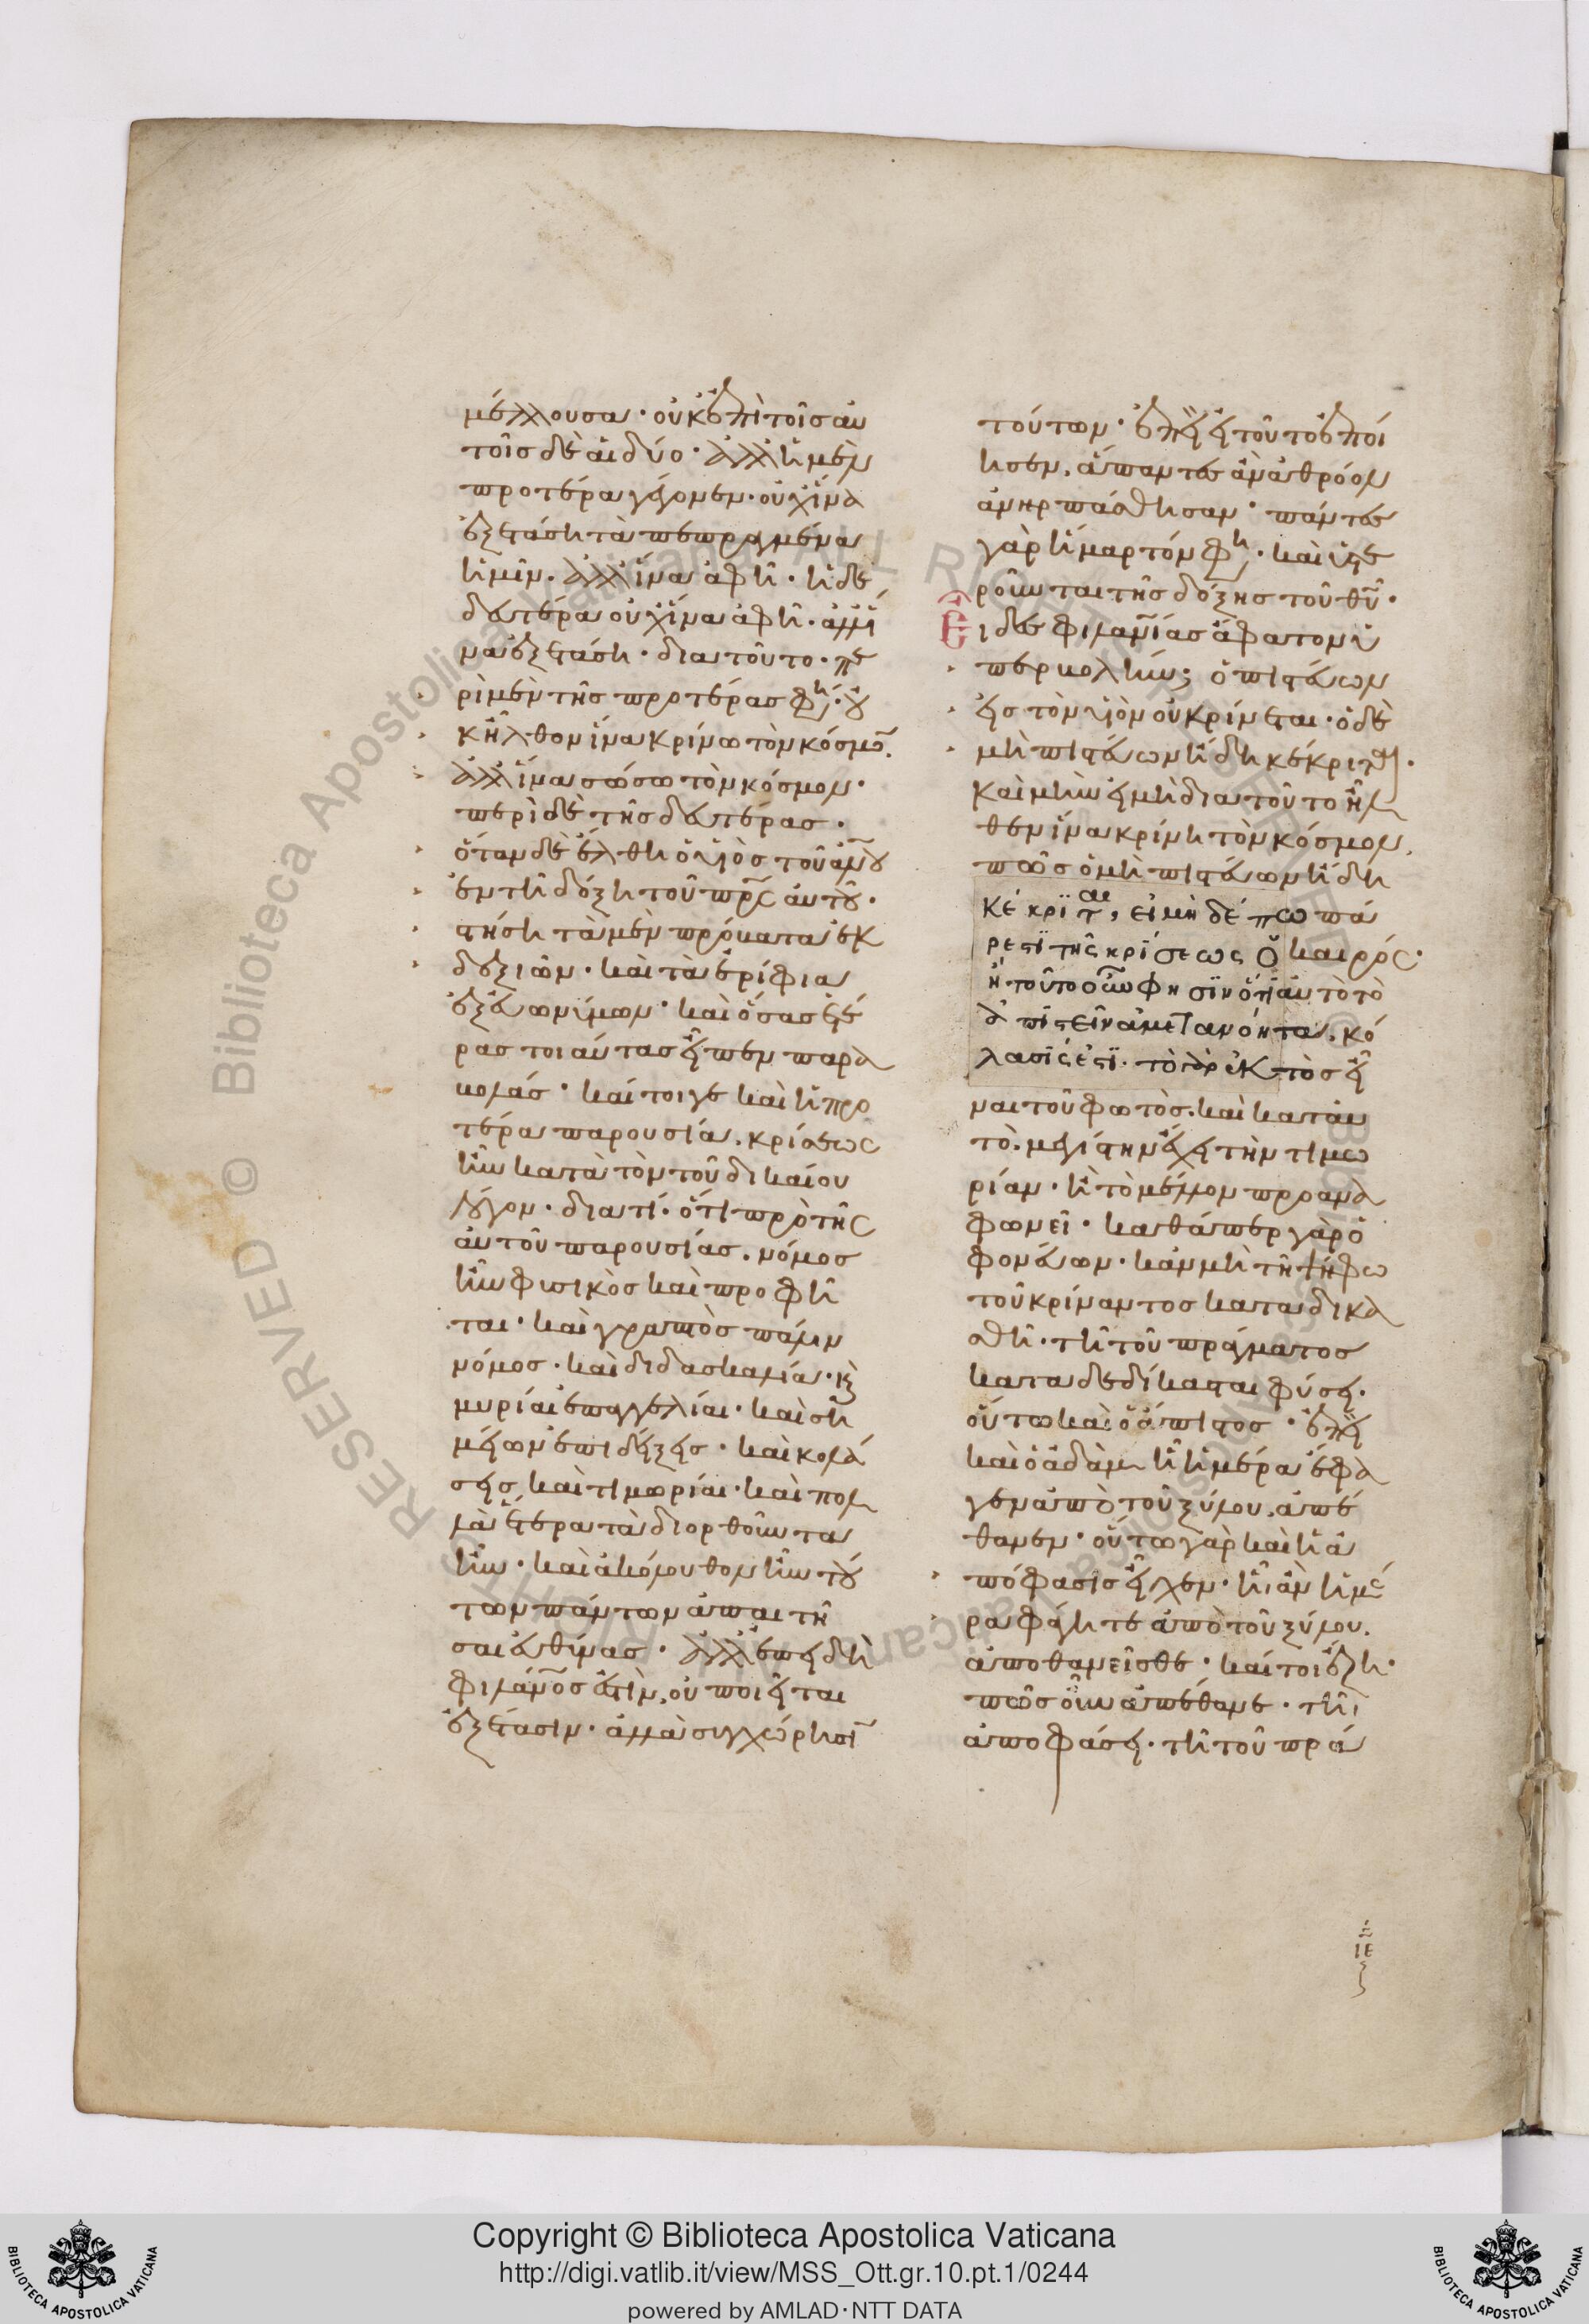 μέλλουσα· οὐκ ἐπὶ τοῖς αυ
τοῖς δὲ αἱ δύο· ἀλλ ἡ μὲν
προτέρα γέγονεν· οὐχ ἵνα
ἐξετάση τὰ πεπραγμένα
ἡμῖν. ἀλλ ἵνα ἀφῆ· ἡ δὲ
δευτέρα οὐχ ἵνα ἀφῆ· ἀλλ ἵ
να ἐξετάση· διατοῦτο· πε
ρὶ μὲν τῆς προτέρας φη· οὐ
κ ἦλθον ἵνα κρίνω τὸν κόσμον.
ἀλλ ἵνα σώσω τὸν κόσμον·
περὶ δὲ τῆς δευτέρας·
ὅταν δὲ ἔλθη ὁ υἱὸς τοῦ ἀνου
ἐν τῆ δόξη τοῦ πρς αὐτοῦ·
στήση τὰ μὲν πρόβατα ἐκ
δεξιῶν· καὶ τὰ ἐρίφια
ἐξ εὐωνύμων· καὶ ὅσας ἑτέ
ρας τοιαύτας εἶπεν παρα
βολάς· καίτοιγε καὶ ἡ προ
τέρα παρουσία. κρίσεως
ἦν κατὰ τὸν τοῦ δικαίου
λόγον· διατί· ὅτι πρὸ τῆς
αὐτοῦ παρουσίας. νόμος
ἦν φυσικὸς καὶ προφῆ
ται· καὶ γραπτὸς πάλιν
νόμος· καὶ διδασκαλία· κ
μυρίαι ἐπαγγελίαι· καὶ ση
μείων ἐπιδείξεις· καὶ κολά
σεις καὶ τιμωρίαι· καὶ πολ
λὰ ἕτερα τὰ διορθοῦντα
ἦν· καὶ ἀκόλουθον ἦν τού
των πάντων ἀπαιτῆ
σαι εὐθύνας· ἀλλ ἐπειδὴ
φιλάνος ἐστίν, οὐ ποιεῖται
ἐξέτασιν· ἀλλὰ συγχώρησι
τούτων· ἐπεὶ εἰ τοῦτο ἐποί
ησεν, ἅπαντες ἂν ἀθρόον
ἀνηρπάσθησαν· πάντες
γὰρ ἥμαρτόν φη· καὶ ὑστε
ροῦνται τῆς δόξης τοῦ θυ·
Εἶδες φιλανίας ἄφατον ὑ
περβολήν; ὁ πιστεύων
εἰς τὸν υἱὸν οὐ κρίνεται· ὁ δὲ
μὴ πιστεύων ἤδη κέκριται·
καὶ μὴν εἰ μὴ διατοῦτο ἦλ
θεν ἵνα κρίνη τὸν κόσμον.
πῶς ὁ μὴ πιστεύων ἤδη
κέκριται, εἰ μὴ δέπω πά
ρεστι τῆς κρίσεως ὁ καιρός·
ἢ τοῦτο οὖν φησιν ὅτι αὐτὸ τὸ
ἀπιστεῖν ἀμετανόητα. κό
λασίς ἐστι· τὸ γὰρ ἐκτὸς εἶ
ναι τοῦ φωτὸς. καὶ κατ αὐ
τὸ. μεγίστην ἔχει τὴν τιμω
ρίαν· ἢ τὸ μέλλον προανα
φωνεῖ· καθάπερ γὰρ ὁ
φονεύων· κἂν μὴ τῆ ψήφω
τοῦ κρίναντος καταδικα
σθῆ· τῆ τοῦ πράγματος
καταδεδίκασται φύσει·
οὕτω καὶ ὁ ἄπιστος· ἐπεὶ
καὶ ὁ ἀδὰμ ἧ ἡμέρα ἔφα
γεν ἀπὸ τοῦ ξύλου. ἀπέ
θανεν· οὕτω γὰρ καὶ ἡ ἀ
πόφασις εἶχεν· ἧι ἂν ἡμέ
ρα φάγητε ἀπὸ τοῦ ξύλου.
ἀποθανεῖσθε· καίτοι ἔζη·
πῶς οὖν ἀπέθανε· τῆι
ἀποφάσει· τῆ τοῦ πρά
ιε
Copyright © Biblioteca Apostolica Vaticana
http://digi.vatlib.it/view/MSS_Ott.gr.10.pt.1/0244
powered by AMLAD·NTT DATA